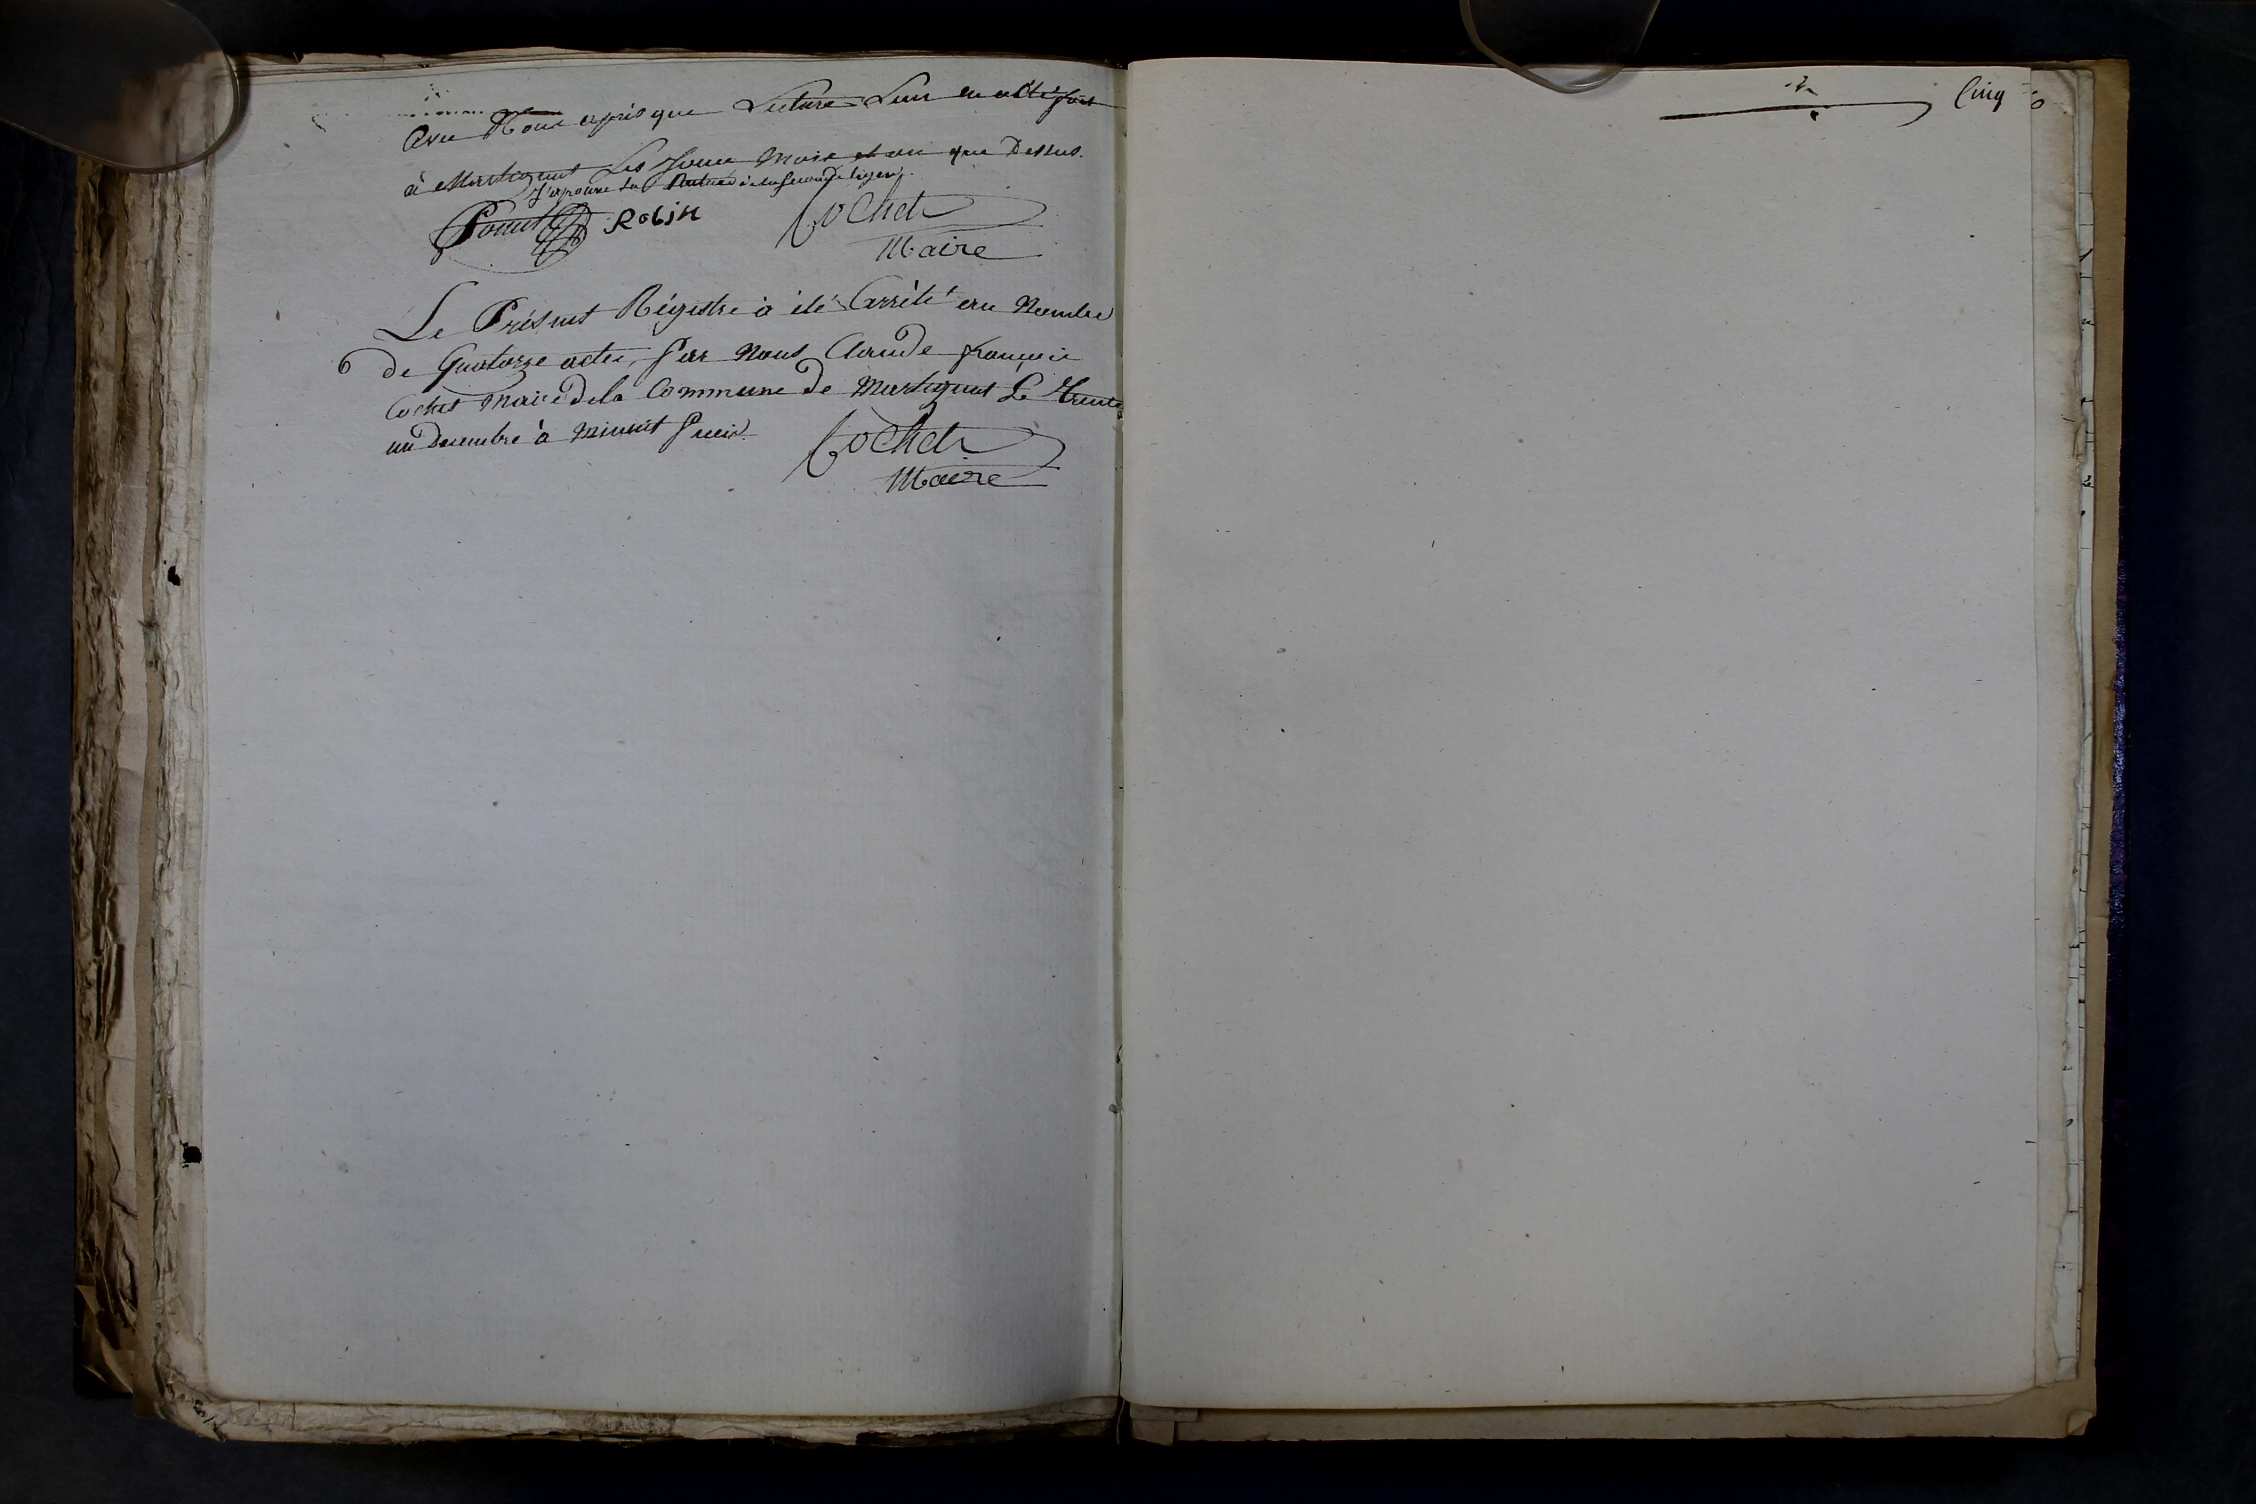 avec Nous après que Lecture Leur en a été fait
à Martignat Les Jour Mois et an que Dessus.
J'approuve la Rature à la seconde ligne
Ponnet Robin Cochet
Maire
Le Présent Régistre à été Carrèté au Nombre
de Quatorze actes, Par Nous Claude françois
Cochet Maire de la Commune de Martignat Le Trente
un Decembre à Minuit Precis.
Cochet
Maire
Cinq